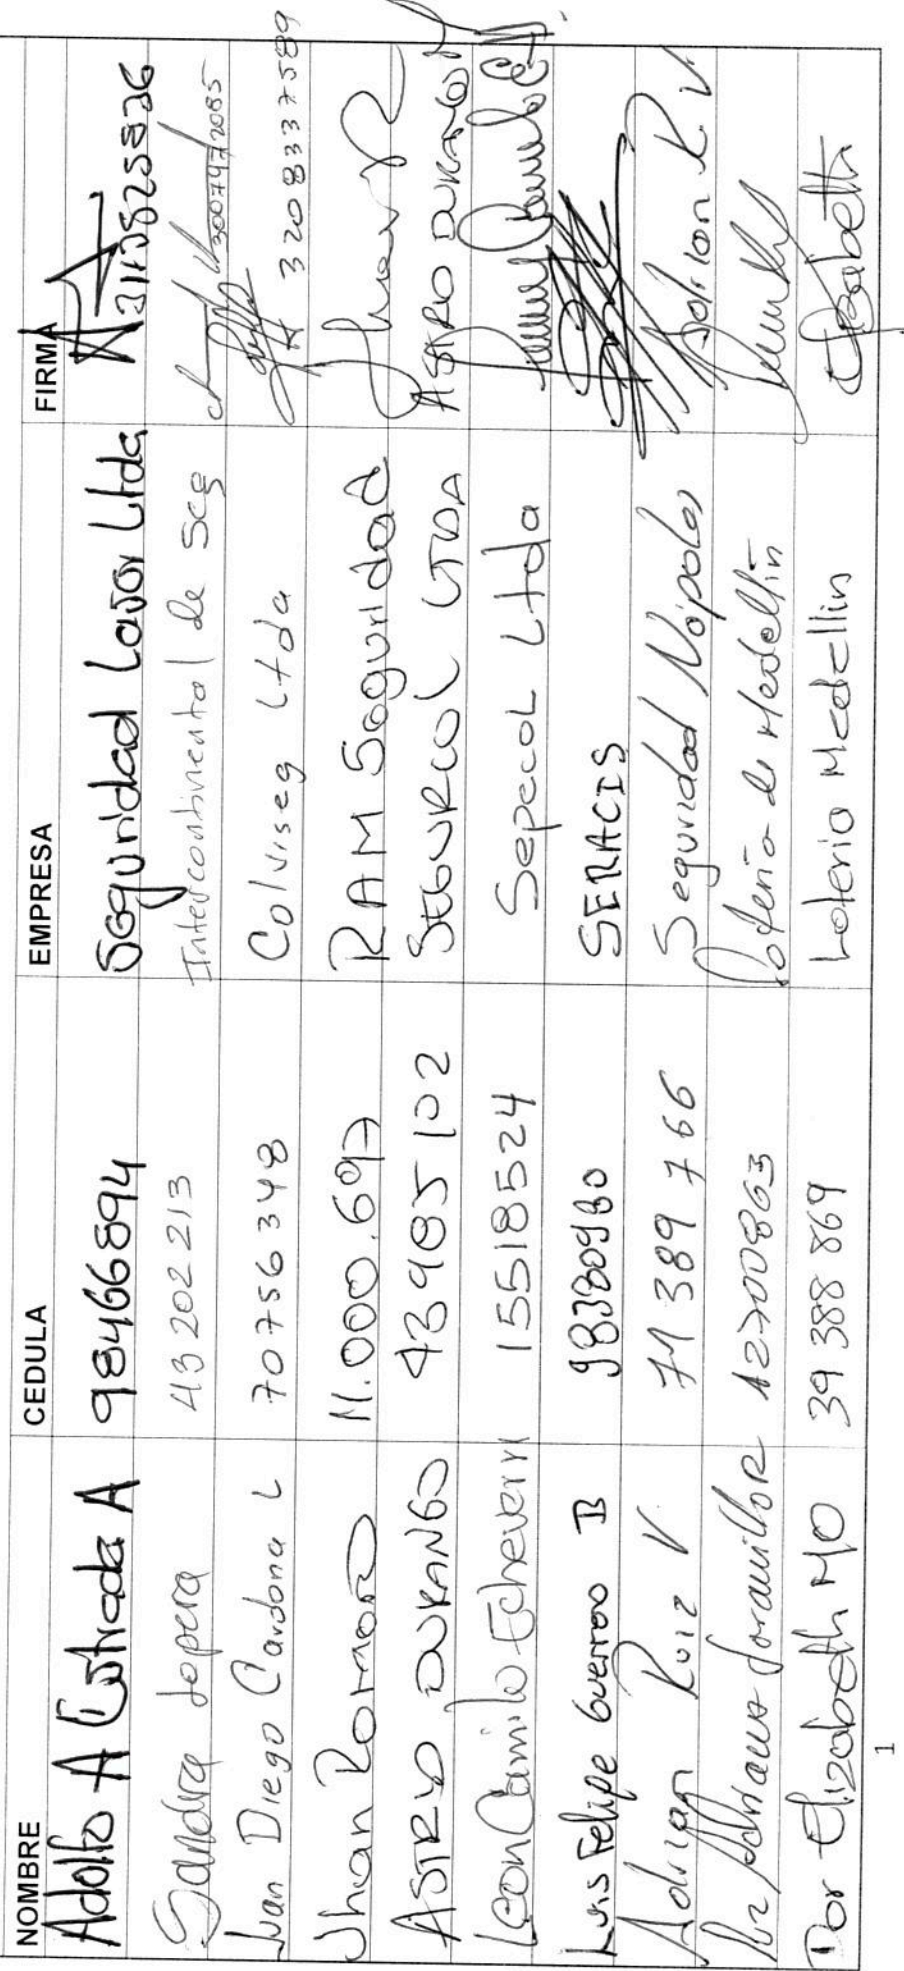 NOMBRE CEDULA EMPRESA FIRMA
Adolfo A Estrada A 98466894 Seguridad Lasor Ltda 3113825826
Sandra Lopera 43202213 Intercontinental de Seg 3007972085
Ivan Diego Cardona L 70756348 Colviseg Ltda 3208337589
Jhan Roman 11.000.697 RAM Seguridad Jhan R
ASTRID DURANGO 43985102 SEGURCOL LTDA ASTRID DURANGO
Leon Camilo Echeverri 15518524 Sepecol Ltda
Luis Felipe Guerrero B 98380980 SERACIS
Adrian Ruiz V 71389766 Seguridad Nápoles Adrian R. V
Adriana Jaramillo R 42700863 Lotería de Medellín
Dor Elizabeth MO 39388869 Loteria Medellin Elizabeth
1